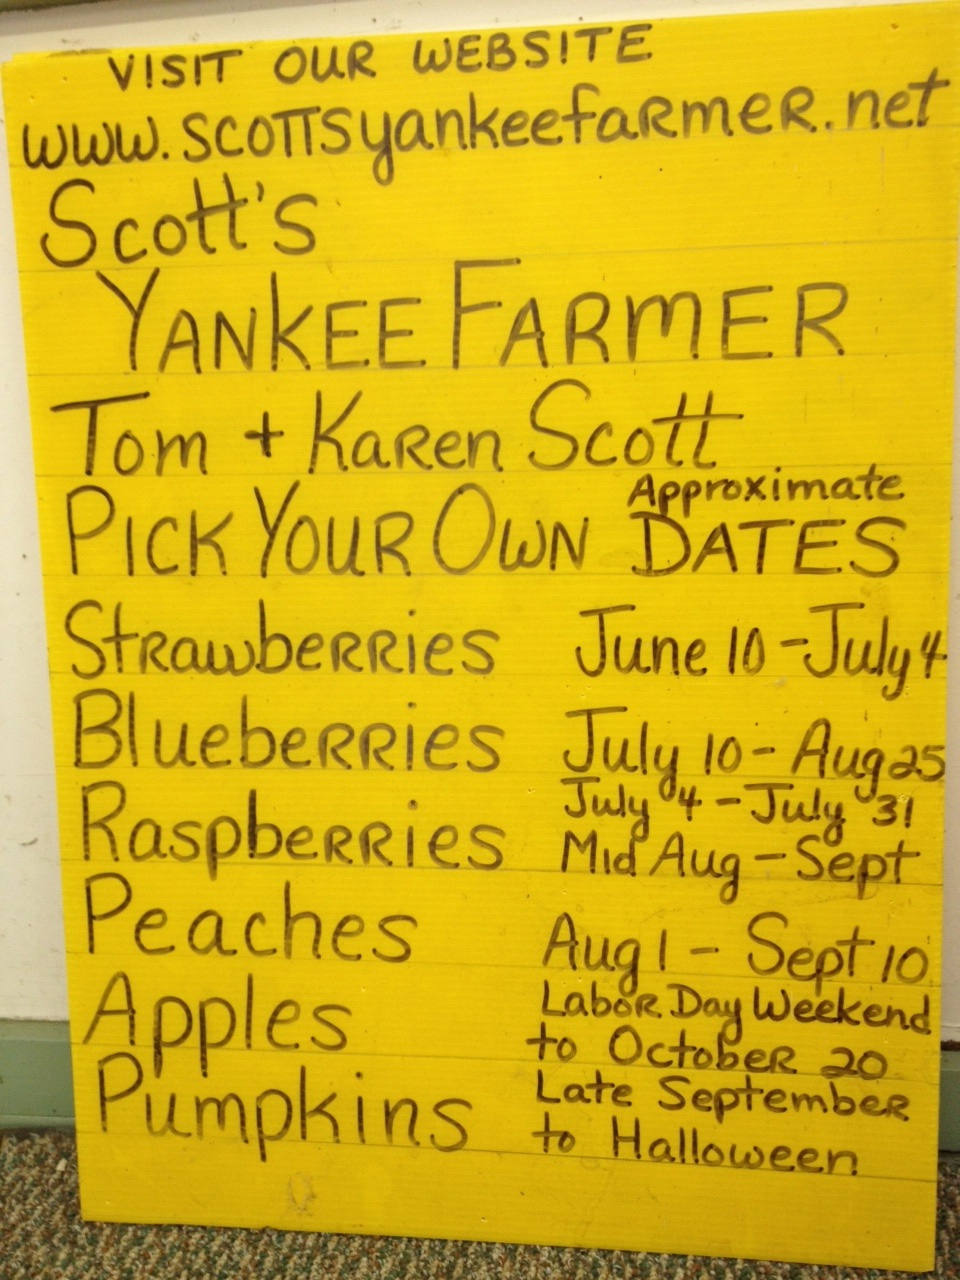 VISIT OUR WEBSITE
www.scottsyankeefarmer.net
Scott's
YANKEE FARMER
Tom + Karen Scott
Approximate
PICK YOUR OWN DATES
Strawberries June 10 - July 4
Blueberries July 10 - Aug 25
July 4 - July 31
Raspberries Mid Aug - Sept
Peaches Aug 1 - Sept 10
Apples Labor Day Weekend
to October 20
Pumpkins Late September
to Halloween